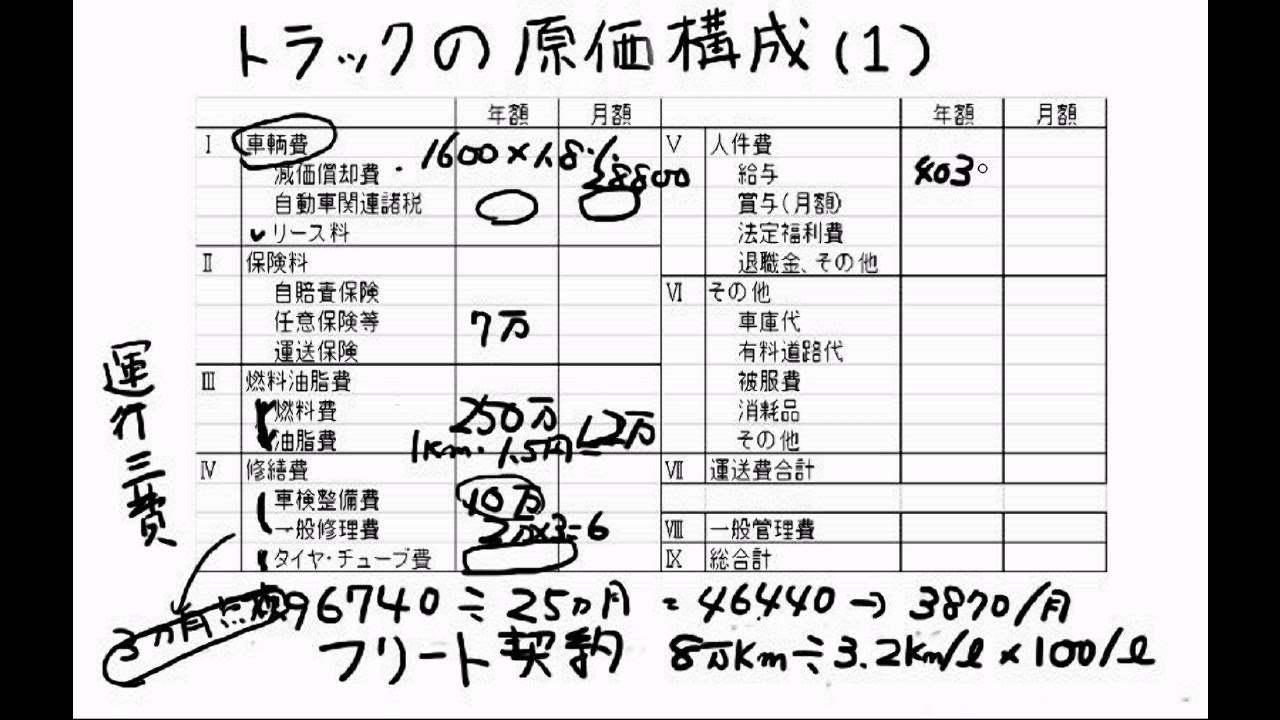 トラックの原価構成(1)
年額 月額 年額 月額
Ⅰ 車輌費 1600×1.8% Ⅴ 人件費
減価償却費 28800 給与 403
自動車関連諸税 賞与(月額)
リース料 法定福利費
Ⅱ 保険料 退職金、その他
自賠責保険 Ⅵ その他
任意保険等 7万 車庫代
運送保険 有料道路代
Ⅲ 燃料油脂費 被服費
燃料費 250万 消耗品
油脂費 1km・1.5円= 12万 その他
Ⅳ 修繕費 Ⅶ 運送費合計
車検整備費 40万
一般修理費 2万×3=6 Ⅷ 一般管理費
タイヤ・チューブ費 Ⅸ 総合計
運行三費
3ヵ月点検
96740÷25ヵ月=46440→3870/月
フリート契約 8万km÷3.2km/ℓ×100/ℓ